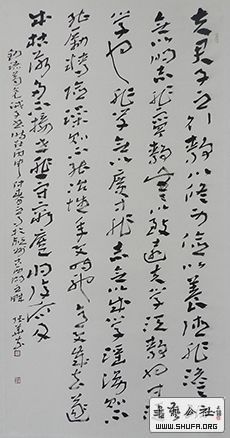 夫君子之行静以修身俭以养德非澹泊
无以明志非宁静无以致远夫学须静也才须
学也非学无以广才非志无以成学淫慢则不
能励精险躁则不能冶性年与时驰意与岁去遂
成枯落多不接世悲守穷庐将复何及
书艺公社
WWW.SHUFA.ORG